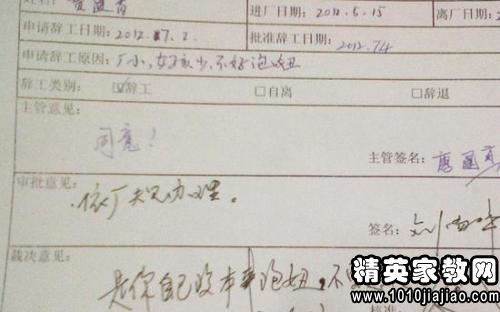 姓名： 进厂日期：2012.5.15 离厂日期：2
申请辞工日期：2012.7.2. 批准辞工日期：2012.7.4
申请辞工原因：厂小，女孩少，不好泡妞
辞工类别： ☑辞工 □自离 □辞退
主管意见：
同意！
主管签名：
审批意见：
依厂规办理。
签名：
裁决意见：
是你自己没本事泡妞，不
核准：
精英家教网
www.1010jiajiao.com